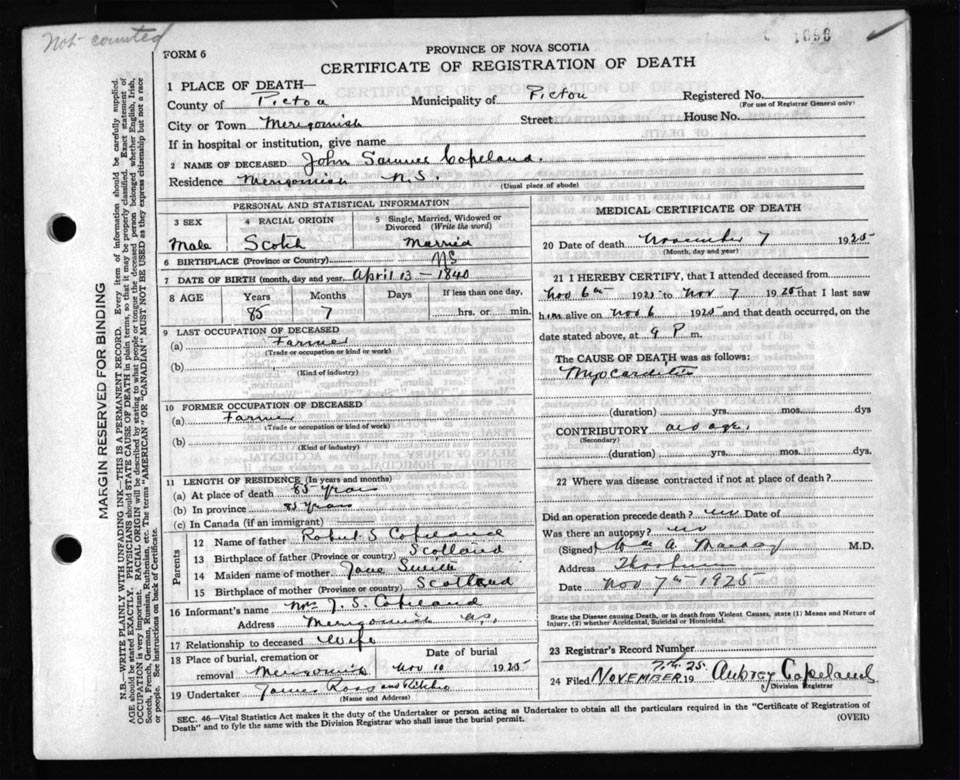 Not counted
1898
FORM 6
PROVINCE OF NOVA SCOTIA
CERTIFICATE OF REGISTRATION OF DEATH
MARGIN RESERVED FOR BINDING
N.B.—WRITE PLAINLY WITH UNFADING INK—THIS IS A PERMANENT RECORD. Every item of information should be carefully supplied.
AGE should be stated EXACTLY. PHYSICIANS should STATE CAUSE OF DEATH in plain terms, so that it may be properly classified. Exact statement of
OCCUPATION is very important. RACIAL ORIGIN will be described by stating to what people or tongue the deceased person belonged whether English, Irish,
Scotch, French, German, Russian, Ruthenian, etc. The terms "AMERICAN" OR "CANADIAN" MUST NOT BE USED as they express citizenship but not a race
or people. See instructions on back of Certificate.
1 PLACE OF DEATH—
County of Pictou Municipality of Pictou Registered No.
(For use of Registrar General only)
City or Town Merigomish Street House No.
If in hospital or institution, give name
2 NAME OF DECEASED John Samuel Copeland.
Residence Merigomish N.S.
(Usual place of abode)
PERSONAL AND STATISTICAL INFORMATION
3 SEX 4 RACIAL ORIGIN 5 Single, Married, Widowed or Divorced (Write the word)
Male Scotch Married
6 BIRTHPLACE (Province or Country) NS
7 DATE OF BIRTH (month, day and year) April 13 - 1840
8 AGE Years Months Days If less than one day,
85 7 hrs. or min.
9 LAST OCCUPATION OF DECEASED
(a) Farmer
(Trade or occupation or kind or work)
(b)
(Kind of industry)
10 FORMER OCCUPATION OF DECEASED
(a) Farmer
(Trade or occupation or kind of work)
(b)
(Kind of industry)
11 LENGTH OF RESIDENCE (In years and months)
(a) At place of death 85 years
(b) In province 85 years
(c) In Canada (if an immigrant)
Parents
12 Name of father Robert S Copeland
13 Birthplace of father (Province or country) Scotland
14 Maiden name of mother Jane Smith
15 Birthplace of mother (Province or country) Scotland
16 Informant's name Mrs J. S. Copeland
Address Merigomish N.S.
17 Relationship to deceased Wife
18 Place of burial, cremation or removal Merigomish Date of burial Nov 10 1925
19 Undertaker James Ross
(Name and Address)
MEDICAL CERTIFICATE OF DEATH
20 Date of death November 7 1925
(Month, day and year)
21 I HEREBY CERTIFY, that I attended deceased from
Nov 6th 1925 to Nov 7 1925 that I last saw
him alive on Nov 6 1925 and that death occurred, on
date stated above, at 9 P. m.
The CAUSE OF DEATH was as follows:
Myocarditis
(duration) yrs. mos. dys
CONTRIBUTORY old age.
(Secondary)
(duration) yrs. mos. dys.
22 Where was disease contracted if not at place of death?
Did an operation precede death? no Date of
Was there an autopsy? no
(Signed) Wm A M.D.
Address Thorburn
Date Nov 7th 1925
State the Disease causing Death, or in death from Violent Causes, state (1) Means and Nature of
Injury, (2) whether Accidental, Suicidal or Homicidal.
23 Registrar's Record Number
24 Filed NOVEMBER 19 Aubrey Copeland
Division Registrar
SEC. 46—Vital Statistics Act makes it the duty of the Undertaker or person acting as Undertaker to obtain all the particulars required in the "Certificate of Registration of
Death" and to fyle the same with the Division Registrar who shall issue the burial permit.
(OVER)